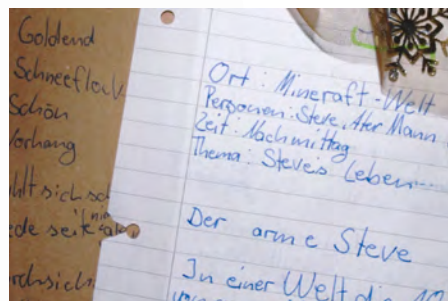 Goldend
Schneeflock
Schön
Vorhang
ühlt sich sch
ede seite
rchsich
Ort: Mineraft-Welt
Personen: Steve, Alter Mann
Zeit: Nachmittag
Thema: Steveis Leben
Der arme Steve
In einer Welt die